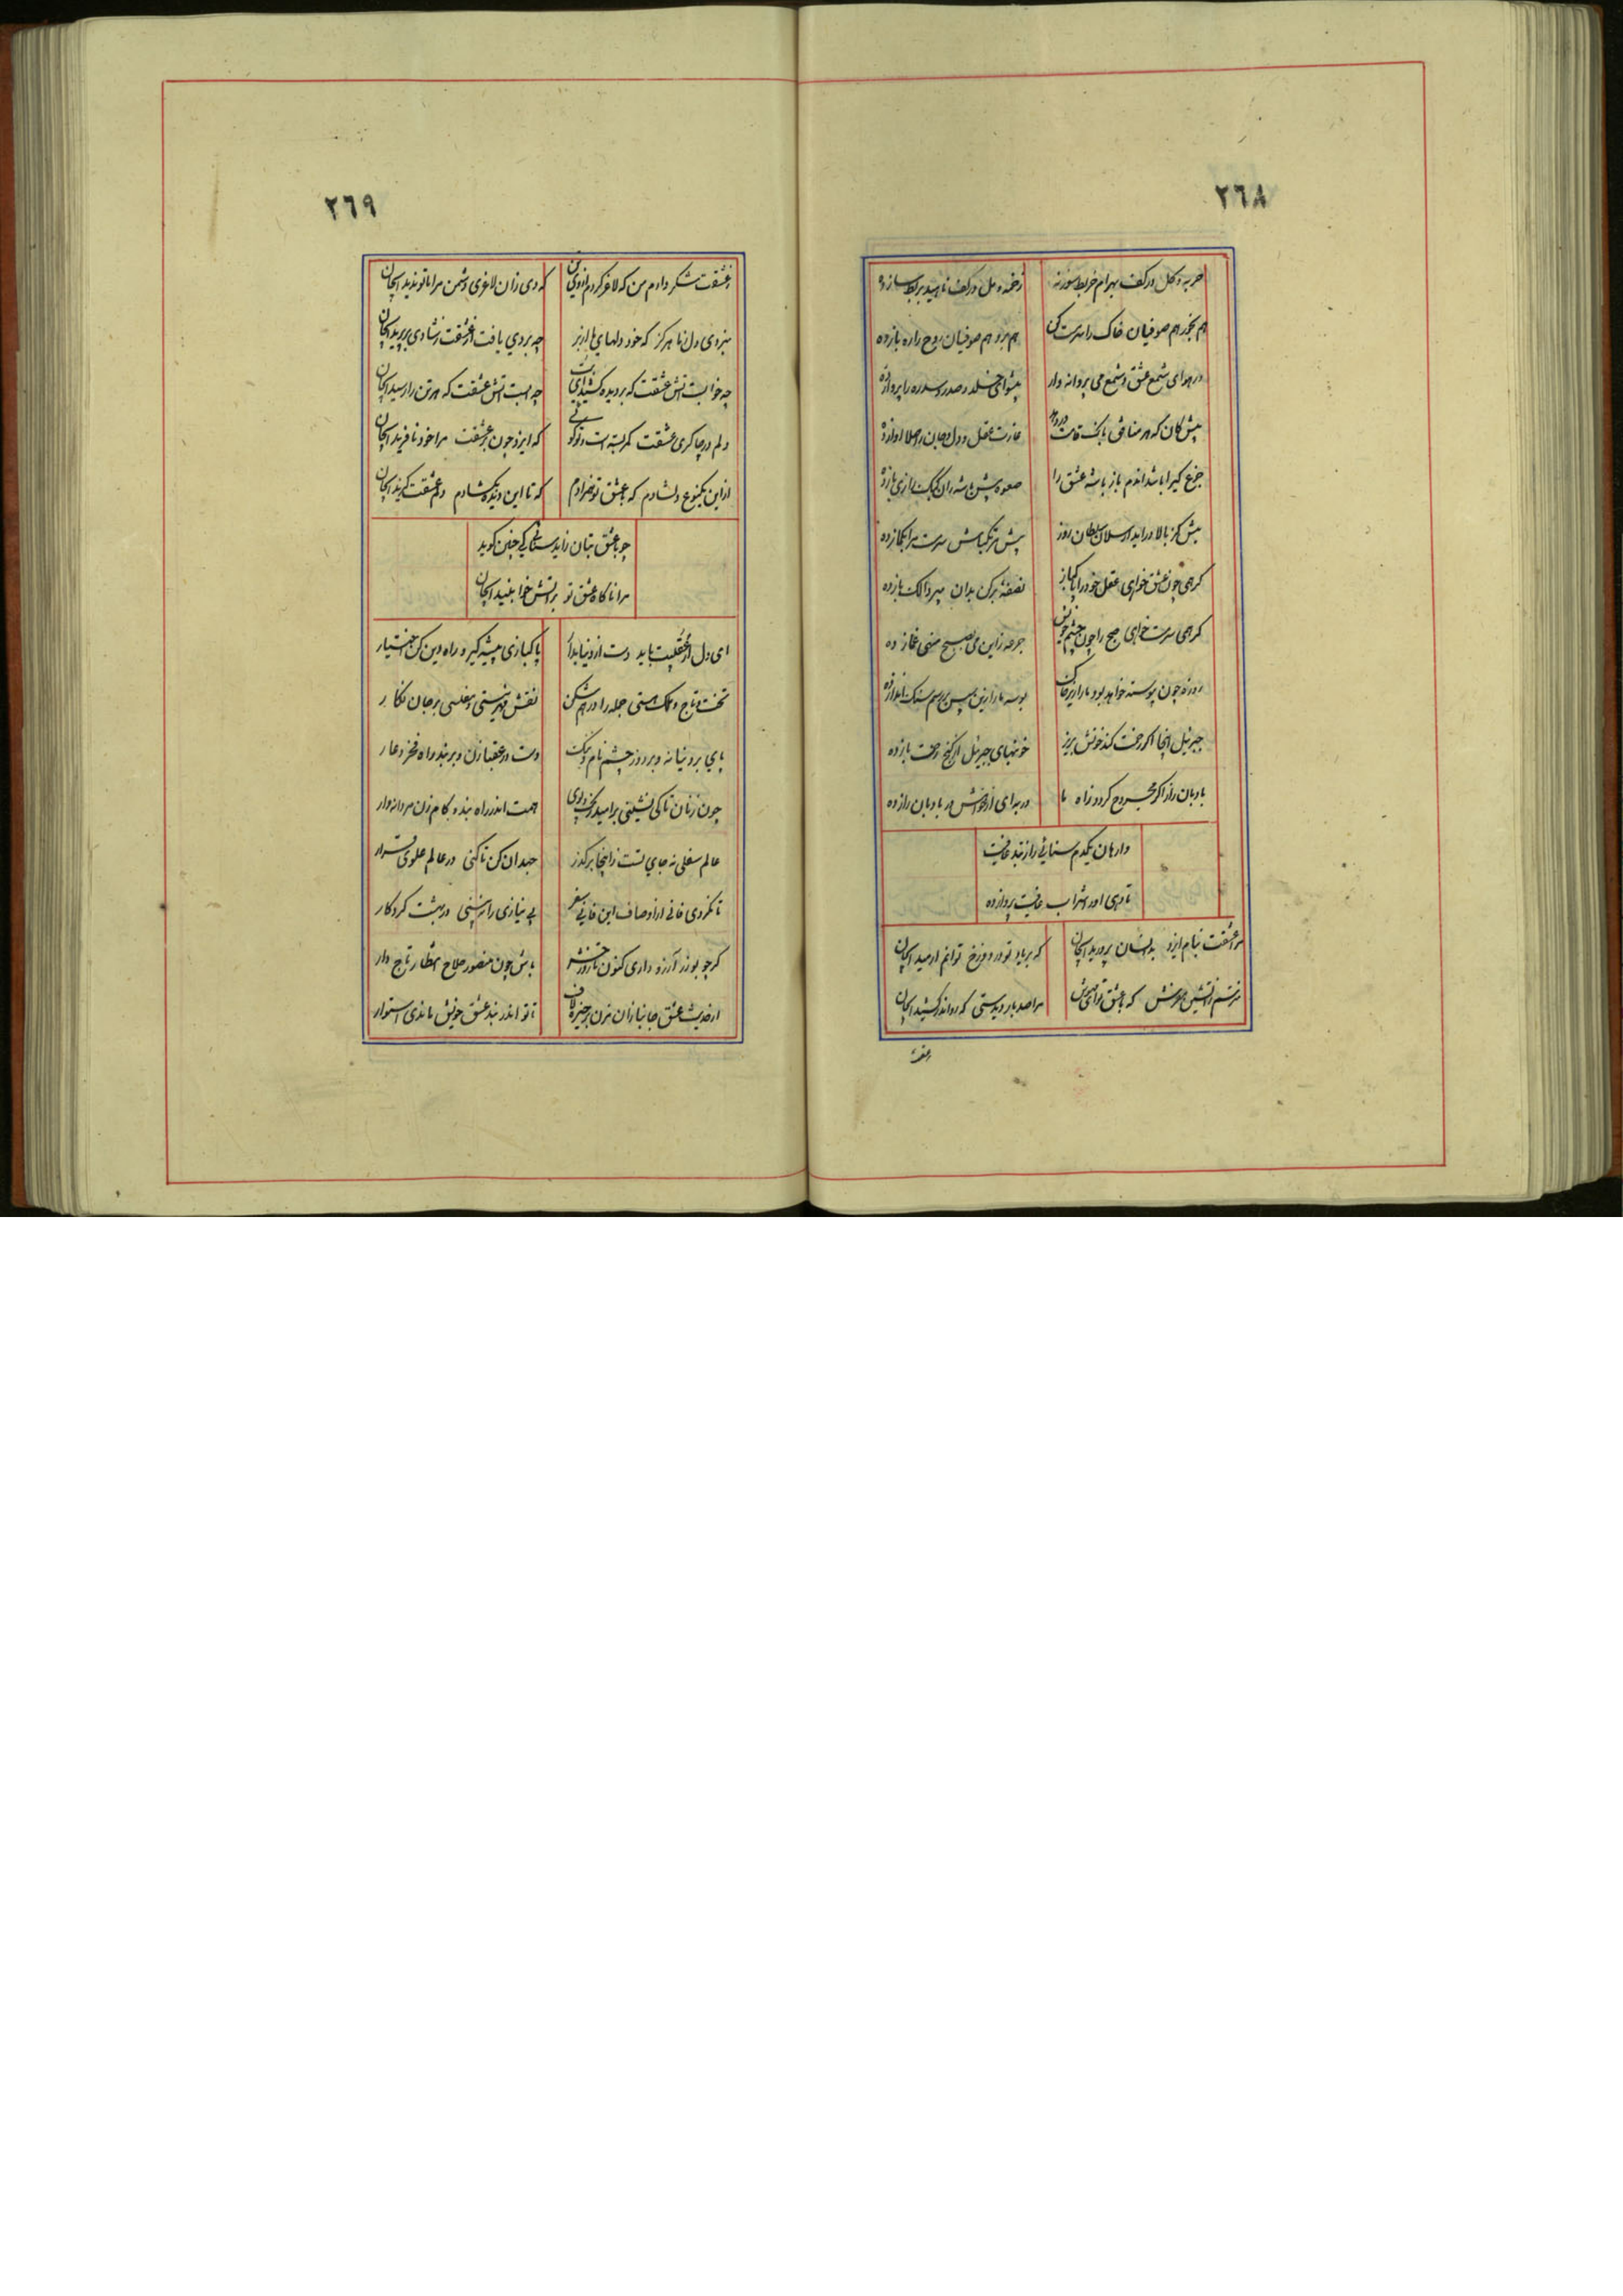 ٢٦٨
حربه و کل در کف بهرام خربط سوز نه
زخمه و مل در کف ناهید بربط ساز ده
هم بخور هم صوفیان خاک را سرمست کن
هم برو هم صوفیان روح را ره باز ده
در هوای شمع عشق و شمع می پروانه وار
پیشوای خلد و صدر سدره را پرواز ده
پیش کان که هر منافق بانک قامت در دهد
غارت عقل و دل و جان را هلا آواز ده
جزع کیرا باشد اندم باز باشه عشق را
صعوه پیش باشه و آن کبک بازی باز ده
پیش کز بالا در اید ارسلان سلطان روز
کر همی چون عشق خواهی عقل خود را پاکباز
نصفیه پر کن بدان پیر دوالک باز ده
کر همی سرمست خواهی صبح را چون چشم خویش
جرعه زاین می بصبح منهی غماز ده
روزه چون پیوسته خواهد بود ما را زیر خاک
بوسه ما را ازین پس بر رسم سنک انداز ده
جبرئیل اینجا اکر زحمت کند خونش بریز
خونبهای جبرئیل از کنج رحمت باز ده
بادبان راز اکر مجروح کردد ز آه ما
در بدای از خامش هر بادبان راز ده
وارهان یکدم سنائی را ز بند عافیت
تا دهی او را شراب عافیت پرداز ده
مرا عشقت بنام ایزد بدانسان پرورید ایجان
که بر یاد تو در دوزخ توانم ارمید ایجان
نترسم ز آتشین مفرش که با عشق تو ای مهوش
مرا صد بار دیدستی که
عشقت
٢٦٩
ز عشقت شکر دارم من که لاغر کردم ازوی تن
که دی زان لاغری دشمن مرا با تو ندید ایجان
ببردی دل نا هرکز که خود دلهای ما از بر
چه بر بوی یافت از عشقت ز شادی بر پرید ایجان
چه خوابست آتش عشقت که بر دیده کشیدای بت
چه است آتش عشقت که هر تن را رسید ایجان
دلم در چاکری عشقت کمر بسته است
که ایزد چون بر عشقت مرا خود نافرید ایجان
از این یکنوع دلشادم که با عشق تو همزادم
که تا این دیده بکشادم دلم عشقت کزید ایجان
چو با عشق بتان زاید سنائی کی چنین کوید
مرا ناکاه عشق تو بر آتش خوابنید ایجان
ای دل ار عقبیت باید دست از دنیا بدار
پاکبازی پیشه کیر و راه دین کن اختیار
تخت و تاج و ملک هستی جمله را درهم شکن
نقش مهر نیستی و مفلسی بر جان نکار
پای بر دنیا نه و بر دوز چشم نام و ننک
دست در عقبا زن و بر بند راه فخر و عار
چون زنان تا کی نشینی بر امید رنک و بوی
همت اندر راه بند و کام زن مردانه وار
عالم سفلی نه جای تست زاینجا بر کذر
جهد آن کن تا کنی در عالم علوی قرار
تا نکردی فانی از اوصاف این فانی سفر
بی نیازی را نبینی در بهشت کردکار
کر چو بوذر آرزو داری کنون تاج روز حشر
باش چون منصور حلاج انتظار تاج دار
از حدیث عشق جانبازان مزن بر خیره لاف
تا تو اندر بند عشق خویش ماندی استوار